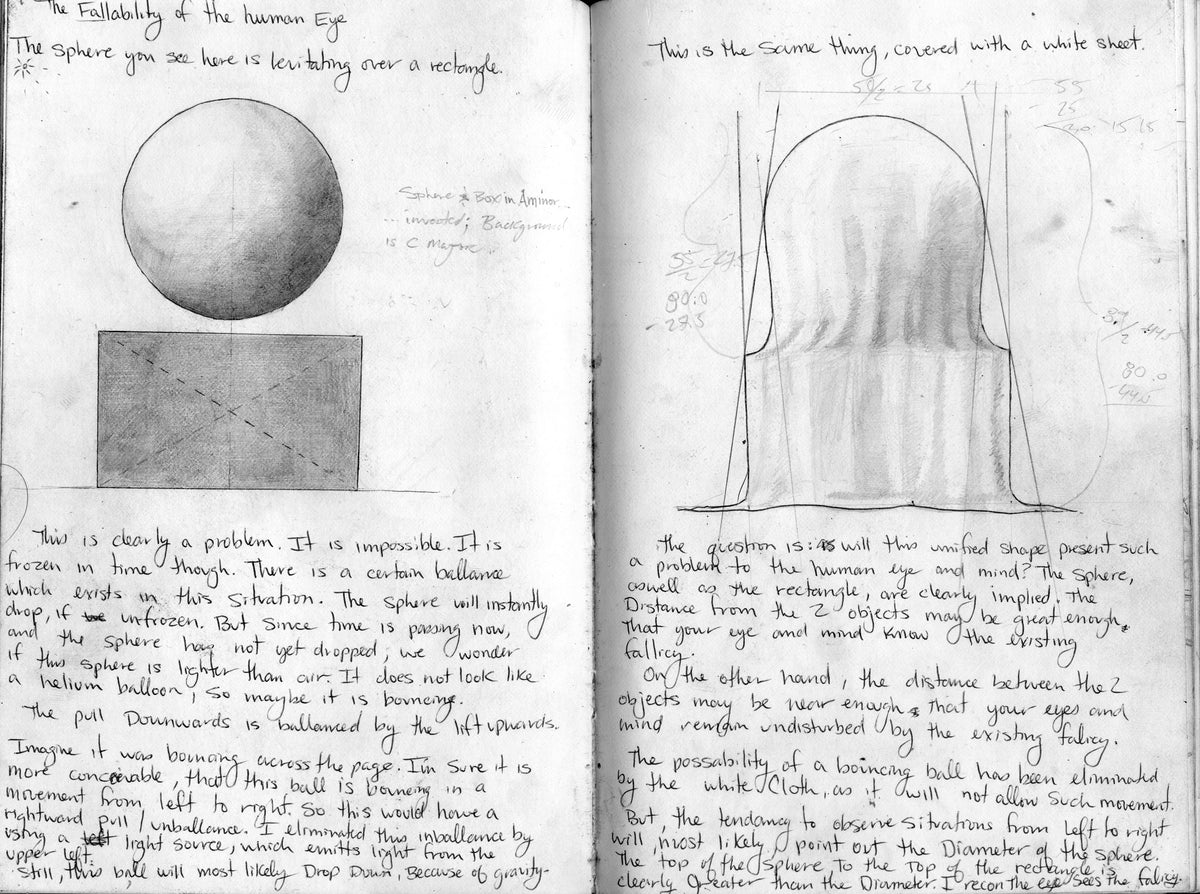 The Fallability of the human Eye
The sphere you see here is levitating over a rectangle.
Sphere & Box in A minor
inverted; Background
is C Major.
This is clearly a problem. It is impossible. It is
frozen in time though. There is a certain ballance
which exists in this situation. The sphere will instantly
drop, if unfrozen. But since time is passing now,
and the sphere has not yet dropped, we wonder
if this sphere is lighter than air. It does not look like
a helium balloon, so maybe it is bouncing.
The pull Downwards is ballanced by the lift upwards.
Imagine it was bouncing across the page. I'm sure it is
more concievable, that this ball is bouncing in a
movement from left to right. So this would have a
rightward pull / unballance. I eliminated this inballance by
using a left light source, which emitts light from the
upper left.
Still, this ball will most likely Drop Down, Because of gravity-
This is the same thing, covered with a white sheet.
55/2 = 25
55
- 25
15 15
55/2
80.0
- 27.5
89/2 44.5
80.0
44.5
The question is: as will this unified shape present such
a problem to the human eye and mind? The sphere,
aswell as the rectangle, are clearly implied. The
Distance from the 2 objects may be great enough,
that your eye and mind know the existing
fallicy.
On the other hand, the distance between the 2
objects may be near enough, that your eyes and
mind remain undisturbed by the existing falicy.
The possability of a boincing ball has been eliminated
by the white cloth, as it will not allow such movement.
But, the tendancy to observe situations from left to right
will, most likely, point out the Diameter of the sphere.
The top of the sphere To the Top of the rectangle is
clearly greater than the Diameter. I recon the eye sees the falicy.